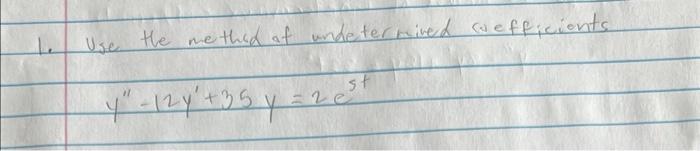 1. Use the method of undetermined coefficients
y'' - 12y' + 35 y = 2e^5t